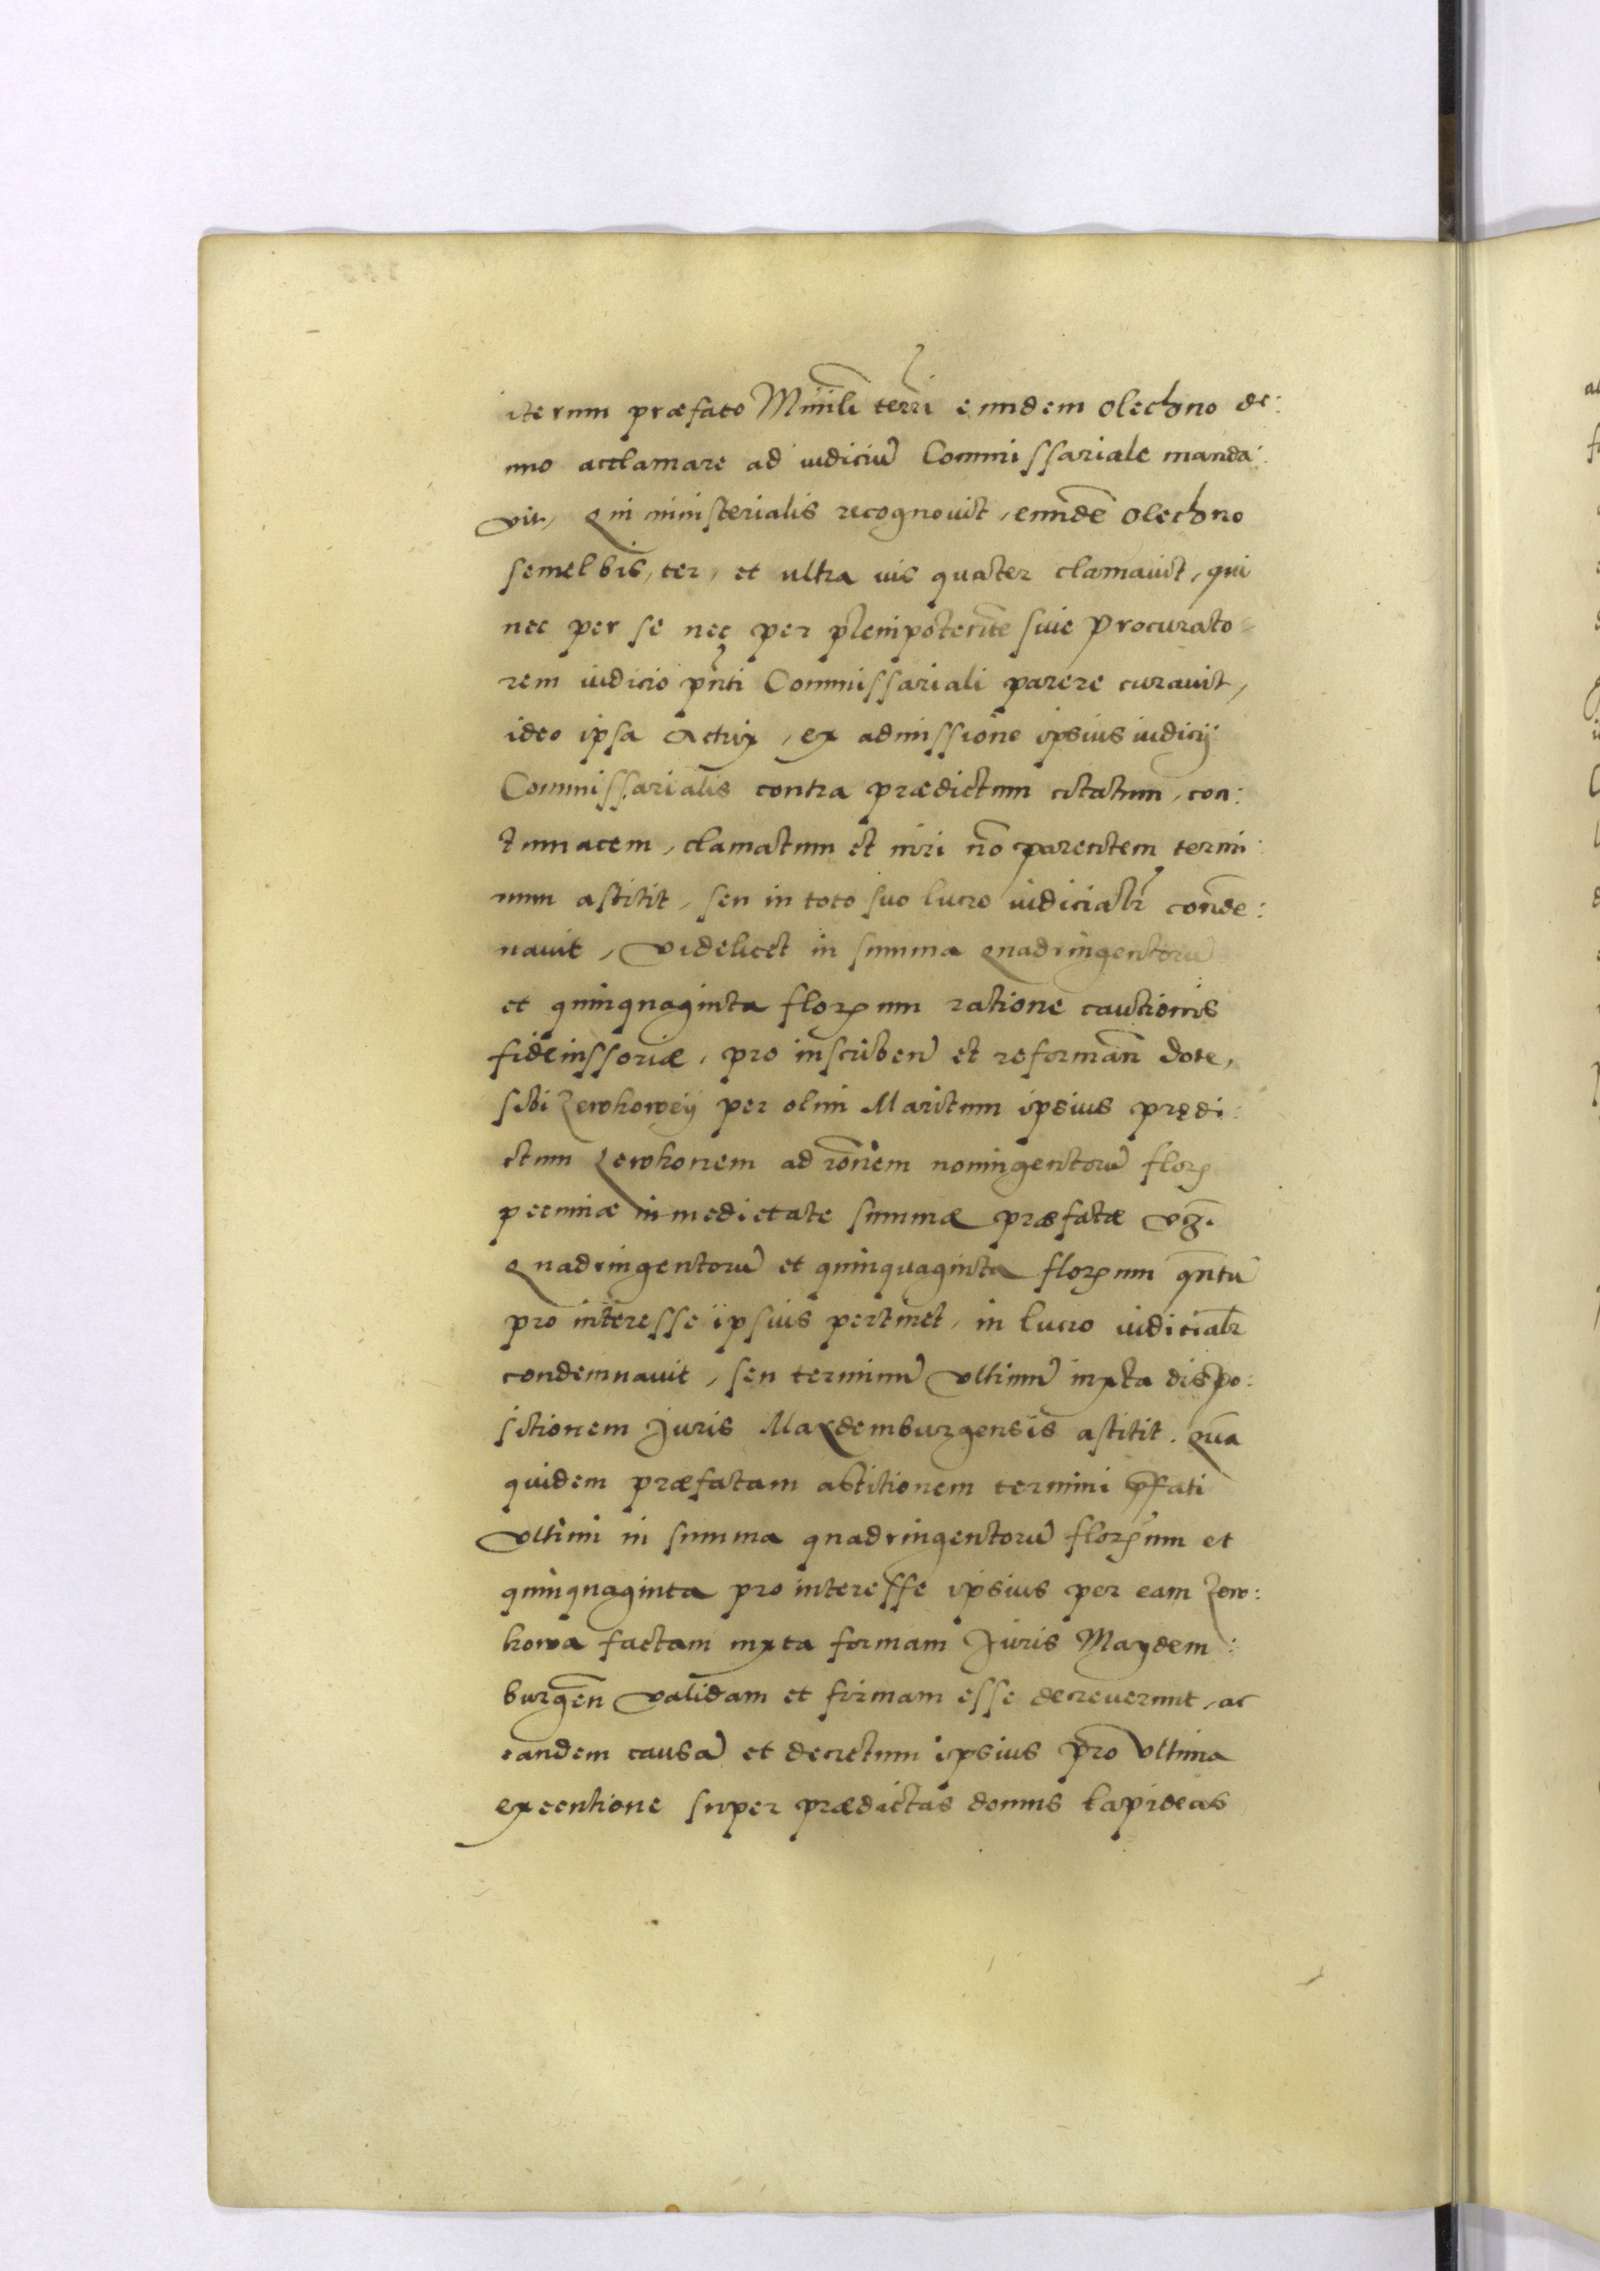 iterum præfato Minrli terri eundem Olechno de:
nuo acclamare ad iudiciū Commissariale manda:
vit, Qui ministerialis recognovit, eundē Olechno
semel bis, ter, et ultra uis quater clamauit, qui
nec per se nec per plenipotentē siue Procurato
rem iudicio pnti Commissariali parere curauit,
ideo ipsa Actrix, ex admissione ipsius iudicij
Commissarialis contra prædictum citatum, con:
tumacem, clamatum et iuri nō parentem termi:
num astitit, seu in toto suo lucro iudicialr conde:
nauit, Videlicet in summa Quadringentorū
et quinquaginta florenum ratione cautionis
fideiussoriæ, pro inscriben et reforman dote,
sibi Zewkoweij per olim Maritum ipsius prędi:
ctum Zewkonem ad rōnem noningentorū flor
pecuniæ in medietate summæ præfatæ vz.
Quadringentorū et quinquaginta florenum qntū
pro interesse ipsius pertinet, in lucro iudicialr
condemnauit, seu terminū Vltimū iuxta dispo:
sitionem Juris Maydemburgensis astitit. Quā
quidem præfatam astitionem termini pfati
Vltimi in summa quadringentorū florenum et
quinquaginta pro interesse ipsius per eam Zew:
kowa factam iuxta formam Juris Maydem:
burgen Validam et firmam esse decreuerunt, ac
eandem causā et decretum ipsius pro Vltima
executione super prædictas domus lapideas